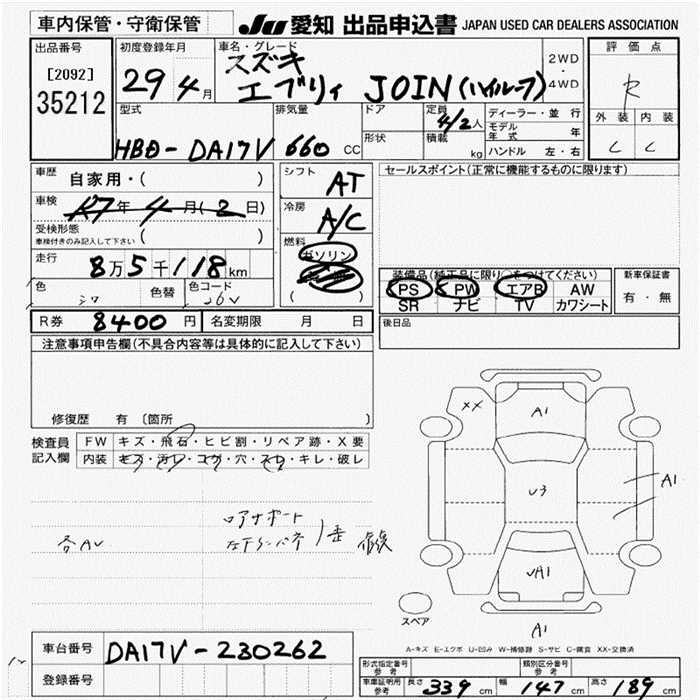 車内保管・守衛保管
JU 愛知 出品申込書 JAPAN USED CAR DEALERS ASSOCIATION
出品番号
[2092]
35212
初度登録年月
29 4月
車名・グレード
スズキ
エブリィ JOIN (ハイルーフ)
2WD
・
4WD
評価点
R
外装 内装
C C
型式
HBD-DA17V
排気量
660 CC
ドア
形状
定員 4/2人
積載 kg
ディーラー・並行
モデル年式 年
ハンドル 左・右
車歴 自家用・( )
車検 年 4月(2日)
受検形態
車検付きのみ記入して下さい ( )
走行 8万5千118km
色 シロ 色替 色コード 26V
シフト AT
冷房 A/C
燃料 ガソリン
( )
セールスポイント(正常に機能するものに限ります)
装備品(純正品に限り○をつけてください)
PS PW エアB AW
SR ナビ TV カワシート
新車保証書
有・無
R券 8400円 名変期限 月 日
後日品
注意事項申告欄(不具合内容等は具体的に記入して下さい)
修復歴 有 〔箇所 〕
検査員
記入欄
FW キズ・飛石・ヒビ割・リペア跡・X要
内装 キズ・汚れ・コゲ・穴・スレ・キレ・破レ
各AU
ロアサポート
XX
A1
U3
A1
A1
スペア
A-キズ E-エクボ U-凹み W-補修跡 S-サビ C-腐食 XX-交換済
車台番号 DA17V-230262
登録番号
形式指定番号
参考
類別区分番号
参考
車庫証明用
参考
長さ 339 cm 幅 147 cm 高さ 189 cm